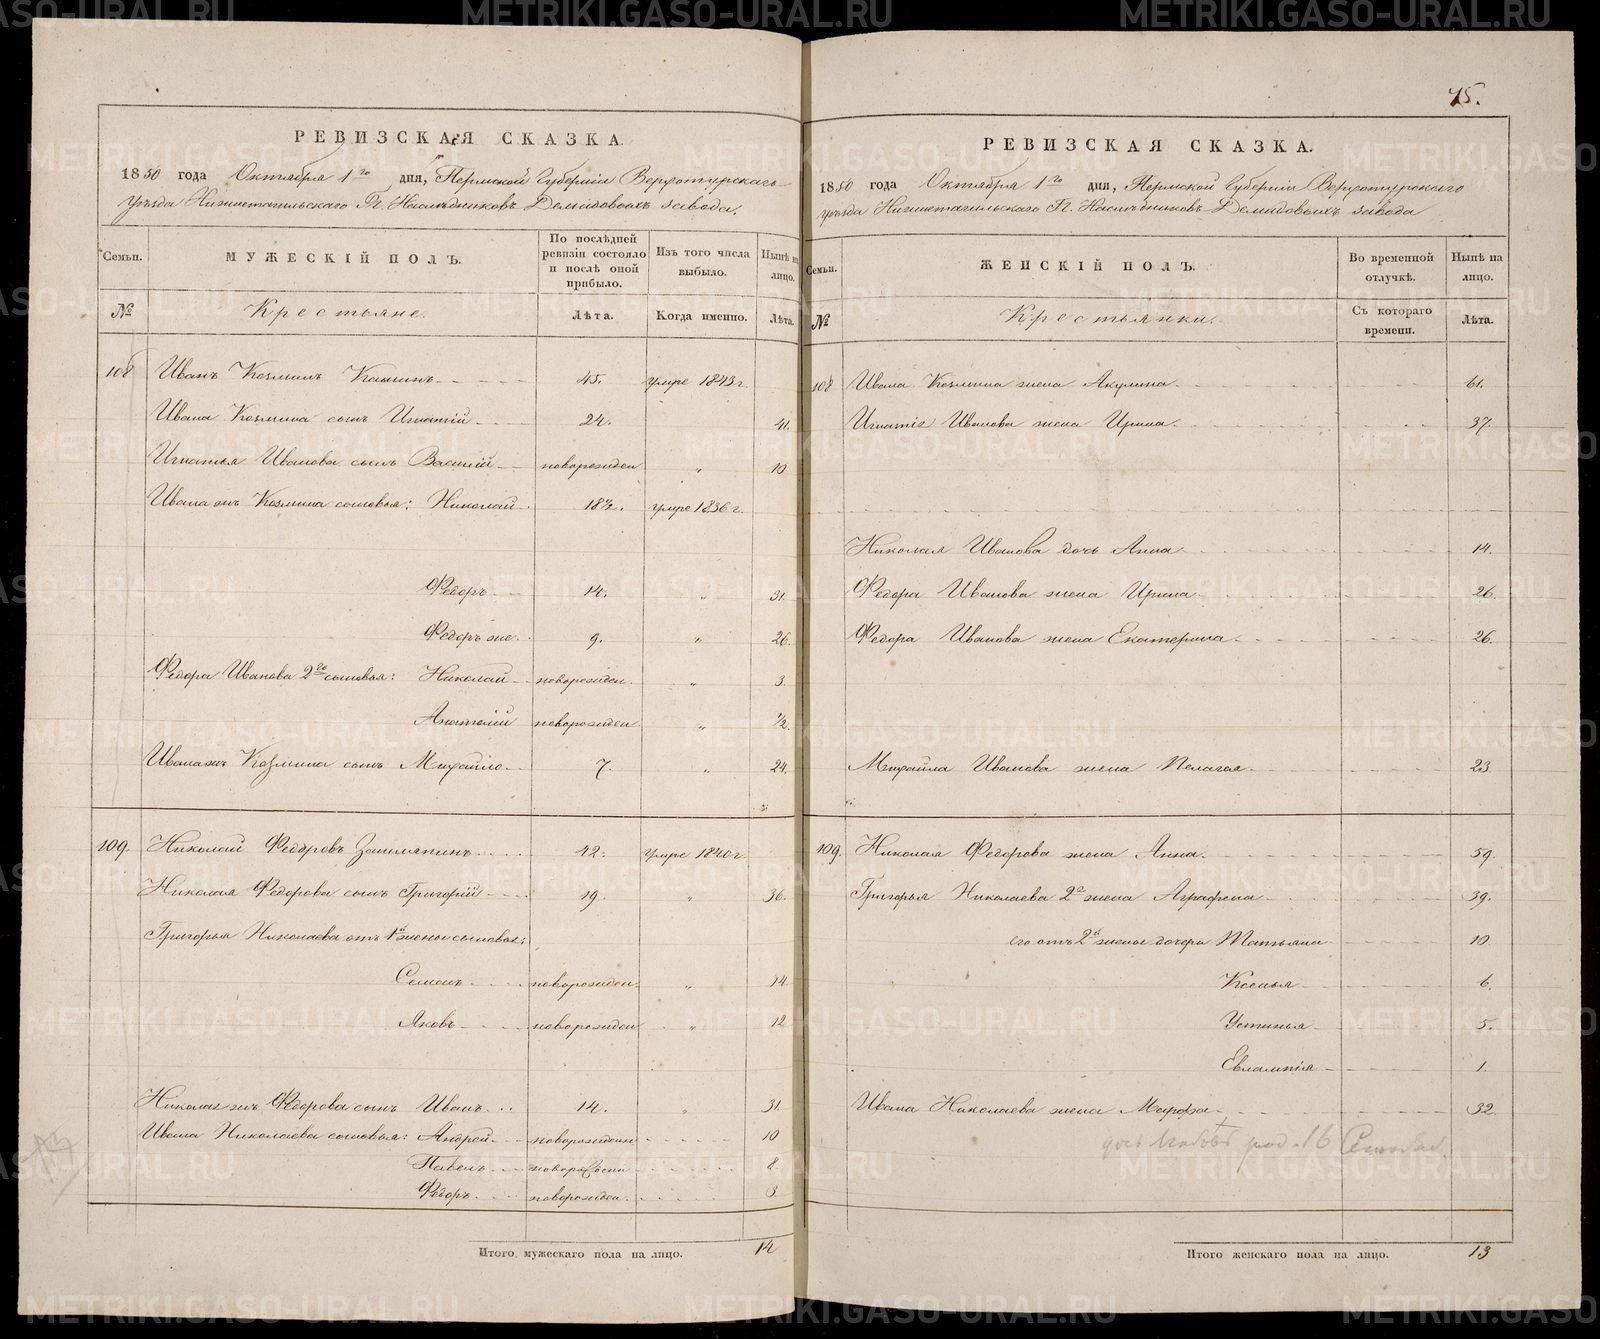 75.
РЕВИЗСКАЯ СКАЗКА.
1850 года Октября 1го дня, Пермской Губернии Верхотурскаго
Уѣзда Нижнетагильскаго Гг. Наслѣдниковъ Демидовыхъ завода.
Семьи.
МУЖЕСКІЙ ПОЛЪ.
По послѣдней ревизіи состояло и послѣ оной прибыло.
Изъ того числа выбыло.
Нынѣ на лицо.
№
Крестьяне.
Лѣта.
Когда именно.
Лѣта.
108 Иванъ Козминъ 45. умре 1843 г.
Ивана Козмина сынъ Игнатій 24. 41.
Игнатья Иванова сынъ Василій новорожден " 10
Ивана жъ Козмина сыновья: Николай 18½. умре 1836 г.
Федоръ 14. " 31.
Федоръ же 9. " 26.
Федора Иванова 2го сыновья: Николай новорожден. " 3.
Анатолій новорожден " ½.
Ивана жъ Козмина сынъ Михайло. 7. " 24.
109. Николай Федоровъ 42. умре 1840 г.
Николая Федорова сынъ Григорій 19. " 36.
Григорья Николаева отъ 1й жены сыновья:
Семенъ новорожден. " 14.
Яковъ новорожден " 12
Николая жъ Федорова сынъ Иванъ 14. " 31.
Ивана Николаева сыновья: Андрей новорожденн 10
Павелъ новорожден 8.
Федоръ новорожден. 3.
Итого мужескаго пола на лицо. 14
РЕВИЗСКАЯ СКАЗКА.
1850 года Октября 1го дня, Пермской Губерніи Верхотурскаго
уѣзда Нижнетагильскаго Гг. Наслѣдниковъ Демидовыхъ завода
Семьи.
ЖЕНСКІЙ ПОЛЪ.
Во временной отлучкѣ.
Нынѣ на лицо.
№
Крестьянки.
Съ котораго времени.
Лѣта.
108 Ивана Козмина жена Акулина. 61.
Игнатія Иванова жена Ирина. 37.
Николая Иванова дочь Анна 14.
Федора Иванова жена Ирина 26.
Федора Иванова жена Екатерина. 26.
Михайла Иванова жена Пелагея. 23
109. Николая Федорова жена Анна. 59.
Григорья Николаева 2я жена Аграфена 39.
его отъ 2й жены дочери Татьяна 10
Ксенья 6.
Устинья 5.
Евлампія 1.
Ивана Николаева жена Марфа 32
дочь Любовь род. 16
Итого женскаго пола на лицо. 13
METRIKI.GASO-URAL.RU